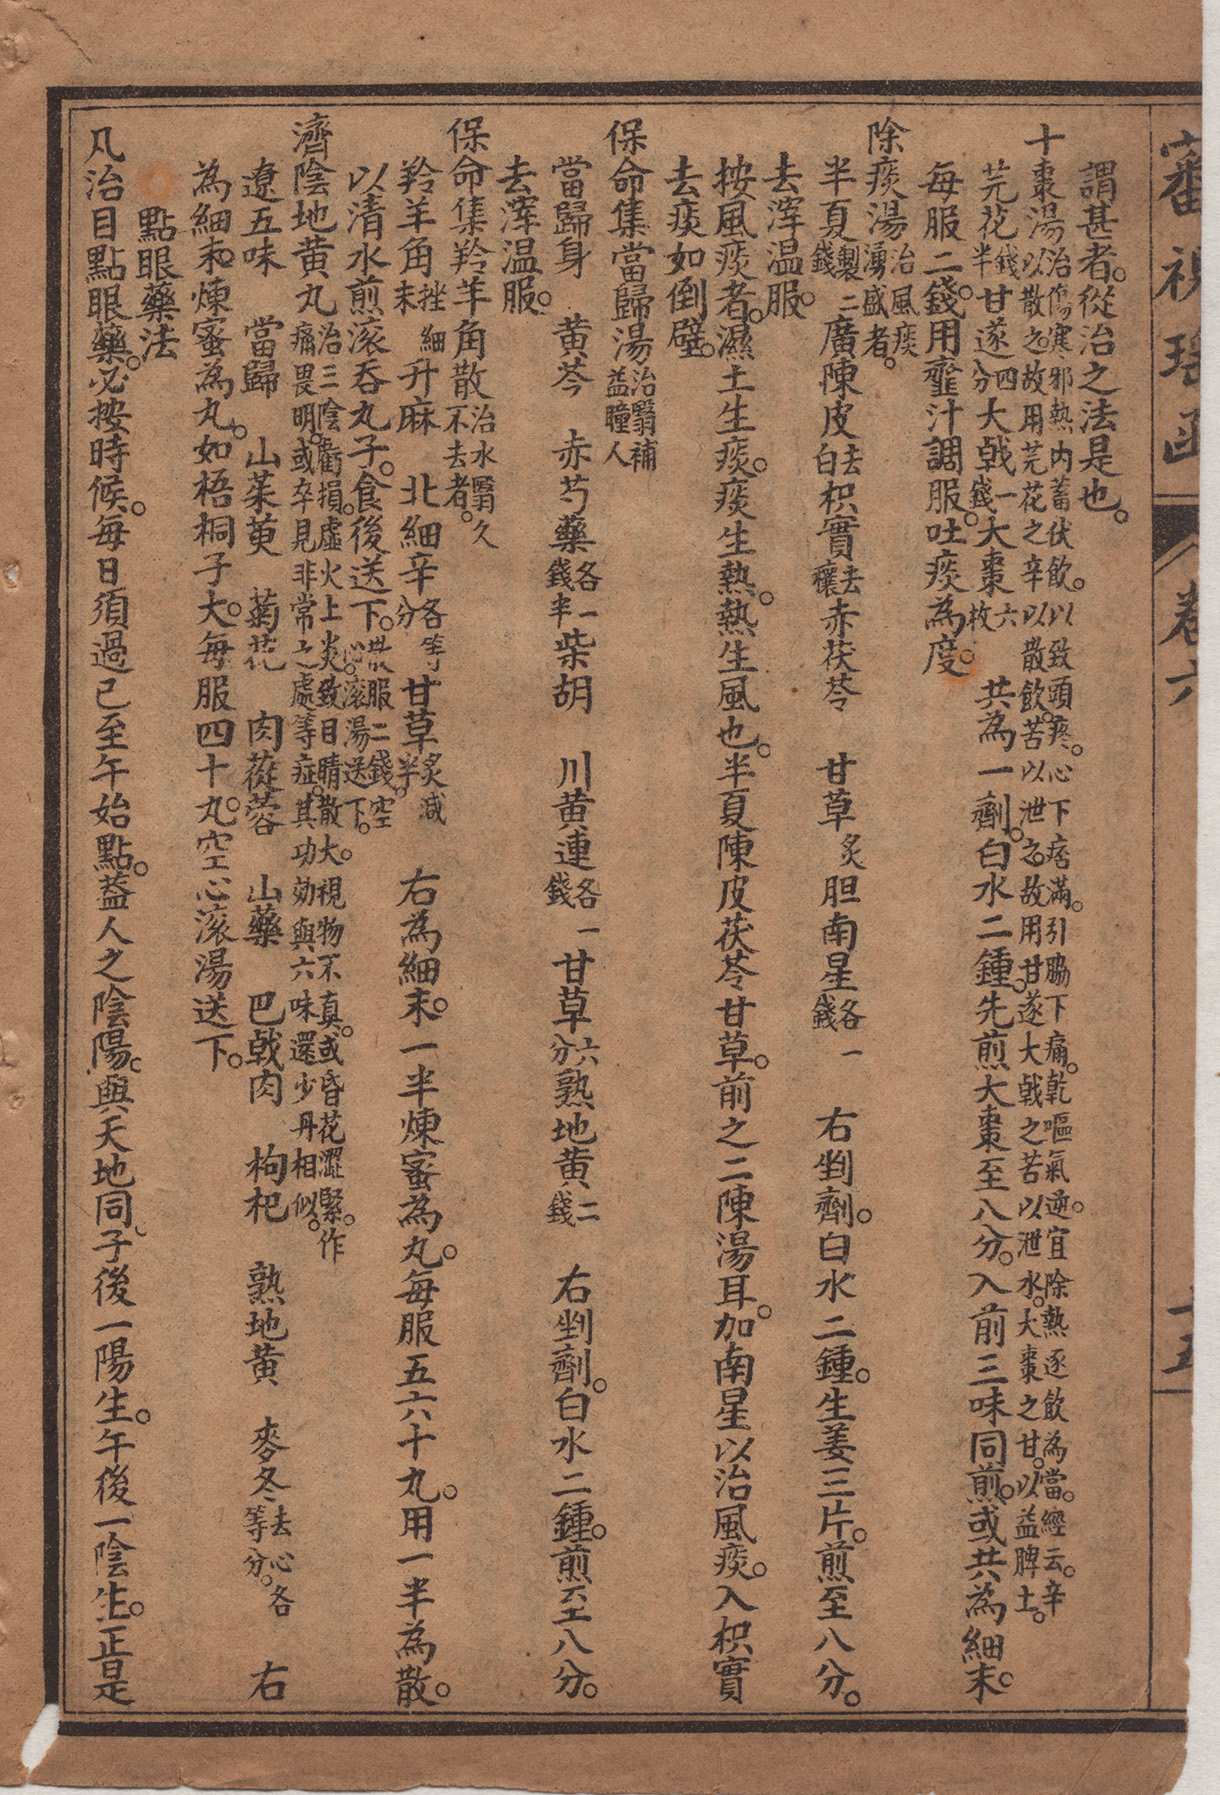 審視瑤函　卷六　十五
謂甚者。從治之法是也。
十棗湯治傷寒邪熱內蓄伏飲。以致頭疼。心下痞滿。引脇下痛。乾嘔氣逆。宜除熱逐飲為當。經云。辛以散之。故用芫花之辛以散飲。苦以泄之。故用甘遂大戟之苦以泄水。大棗之甘。以益脾土。
芫花錢半甘遂四分大戟一錢大棗六枚　共為一劑。白水二鍾。先煎大棗至八分。入前三味同煎。或共為細末。
每服二錢。用虀汁調服。吐痰為度。
除痰湯治風痰湧盛者。
半夏製二錢廣陳皮去白枳實去穰赤茯苓　甘草炙胆南星各一錢　右剉劑。白水二鍾。生姜三片。煎至八分。
去滓温服。
按風痰者。濕土生痰。痰生熱。熱生風也。半夏陳皮茯苓甘草。前之二陳湯耳。加南星以治風痰。入枳實
去痰如倒壁。
保命集當歸湯治翳補益瞳人
當歸身　黃芩　赤芍藥各一錢半柴胡　川黃連各一錢甘草六分熟地黃二錢　右剉劑。白水二鍾。煎至八分。
去滓温服。
保命集羚羊角散治水翳久不去者。
羚羊角挫細末升麻　北細辛各等分甘草炙減半。　右為細末。一半煉蜜為丸。每服五六十丸。用一半為散。
以清水煎滾吞丸子。食後送下。散服二錢空心。滾湯送下。
濟陰地黃丸治三陰虧損。虛火上炎致目睛散大。視物不真。或昏花澀緊。作痛畏明。或卒見非常之處等症。其功効與六味還少丹相似。
遼五味　當歸　山茱萸　菊花　肉蓯蓉　山藥　巴戟肉　枸杞　熟地黃　麥冬去心各等分。　右
為細末。煉蜜為丸。如梧桐子大。每服四十丸。空心滾湯送下。
點眼藥法
凡治目點眼藥。必按時候。每日須過巳至午始點。蓋人之陰陽。與天地同。子後一陽生。午後一陰生。正是